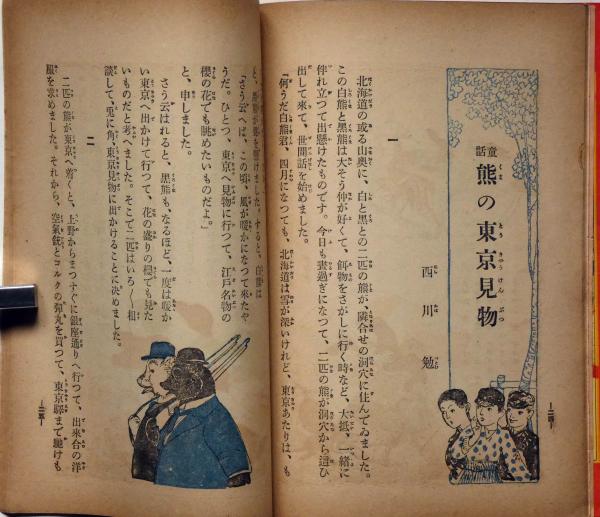 童話
熊の東京見物
西川勉
一
北海道の或る山奥に、白と黒との二匹の熊が、隣合せの洞穴に住んでゐました。
この白熊と黒熊は大そう仲が好くて、餌物をさがしに行く時など、大抵、一緒に
伴れ立つて出懸けたものです。今日も晝過ぎになつて、二匹の熊が洞穴から這ひ
出して來て、世間話を始めました。
「何うだ白熊君、四月になつても、北海道は雪が深いけれど、東京あたりは、も
と、黒熊が
「さう云へば、この頃、風が暖かになつて來たや
うだ。ひとつ、東京へ見物に行つて、江戸名物の
櫻の花でも眺めたいものだよ。」
と、申しました。
さう云はれると、黒熊も、なるほど、一度は暖か
い東京へ出かけて行つて、花の盛りの櫻でも見た
いものだと考へました。そこで二匹はいろ〱相
談して、兎に角、東京見物に出かけることに決めました。
二
二匹の熊が東京へ着くと、上野からまつすぐに銀座通りへ行つて、出來合の洋
服を求めました。それから、空氣銃とコルクの彈丸を買つて、東京驛まで